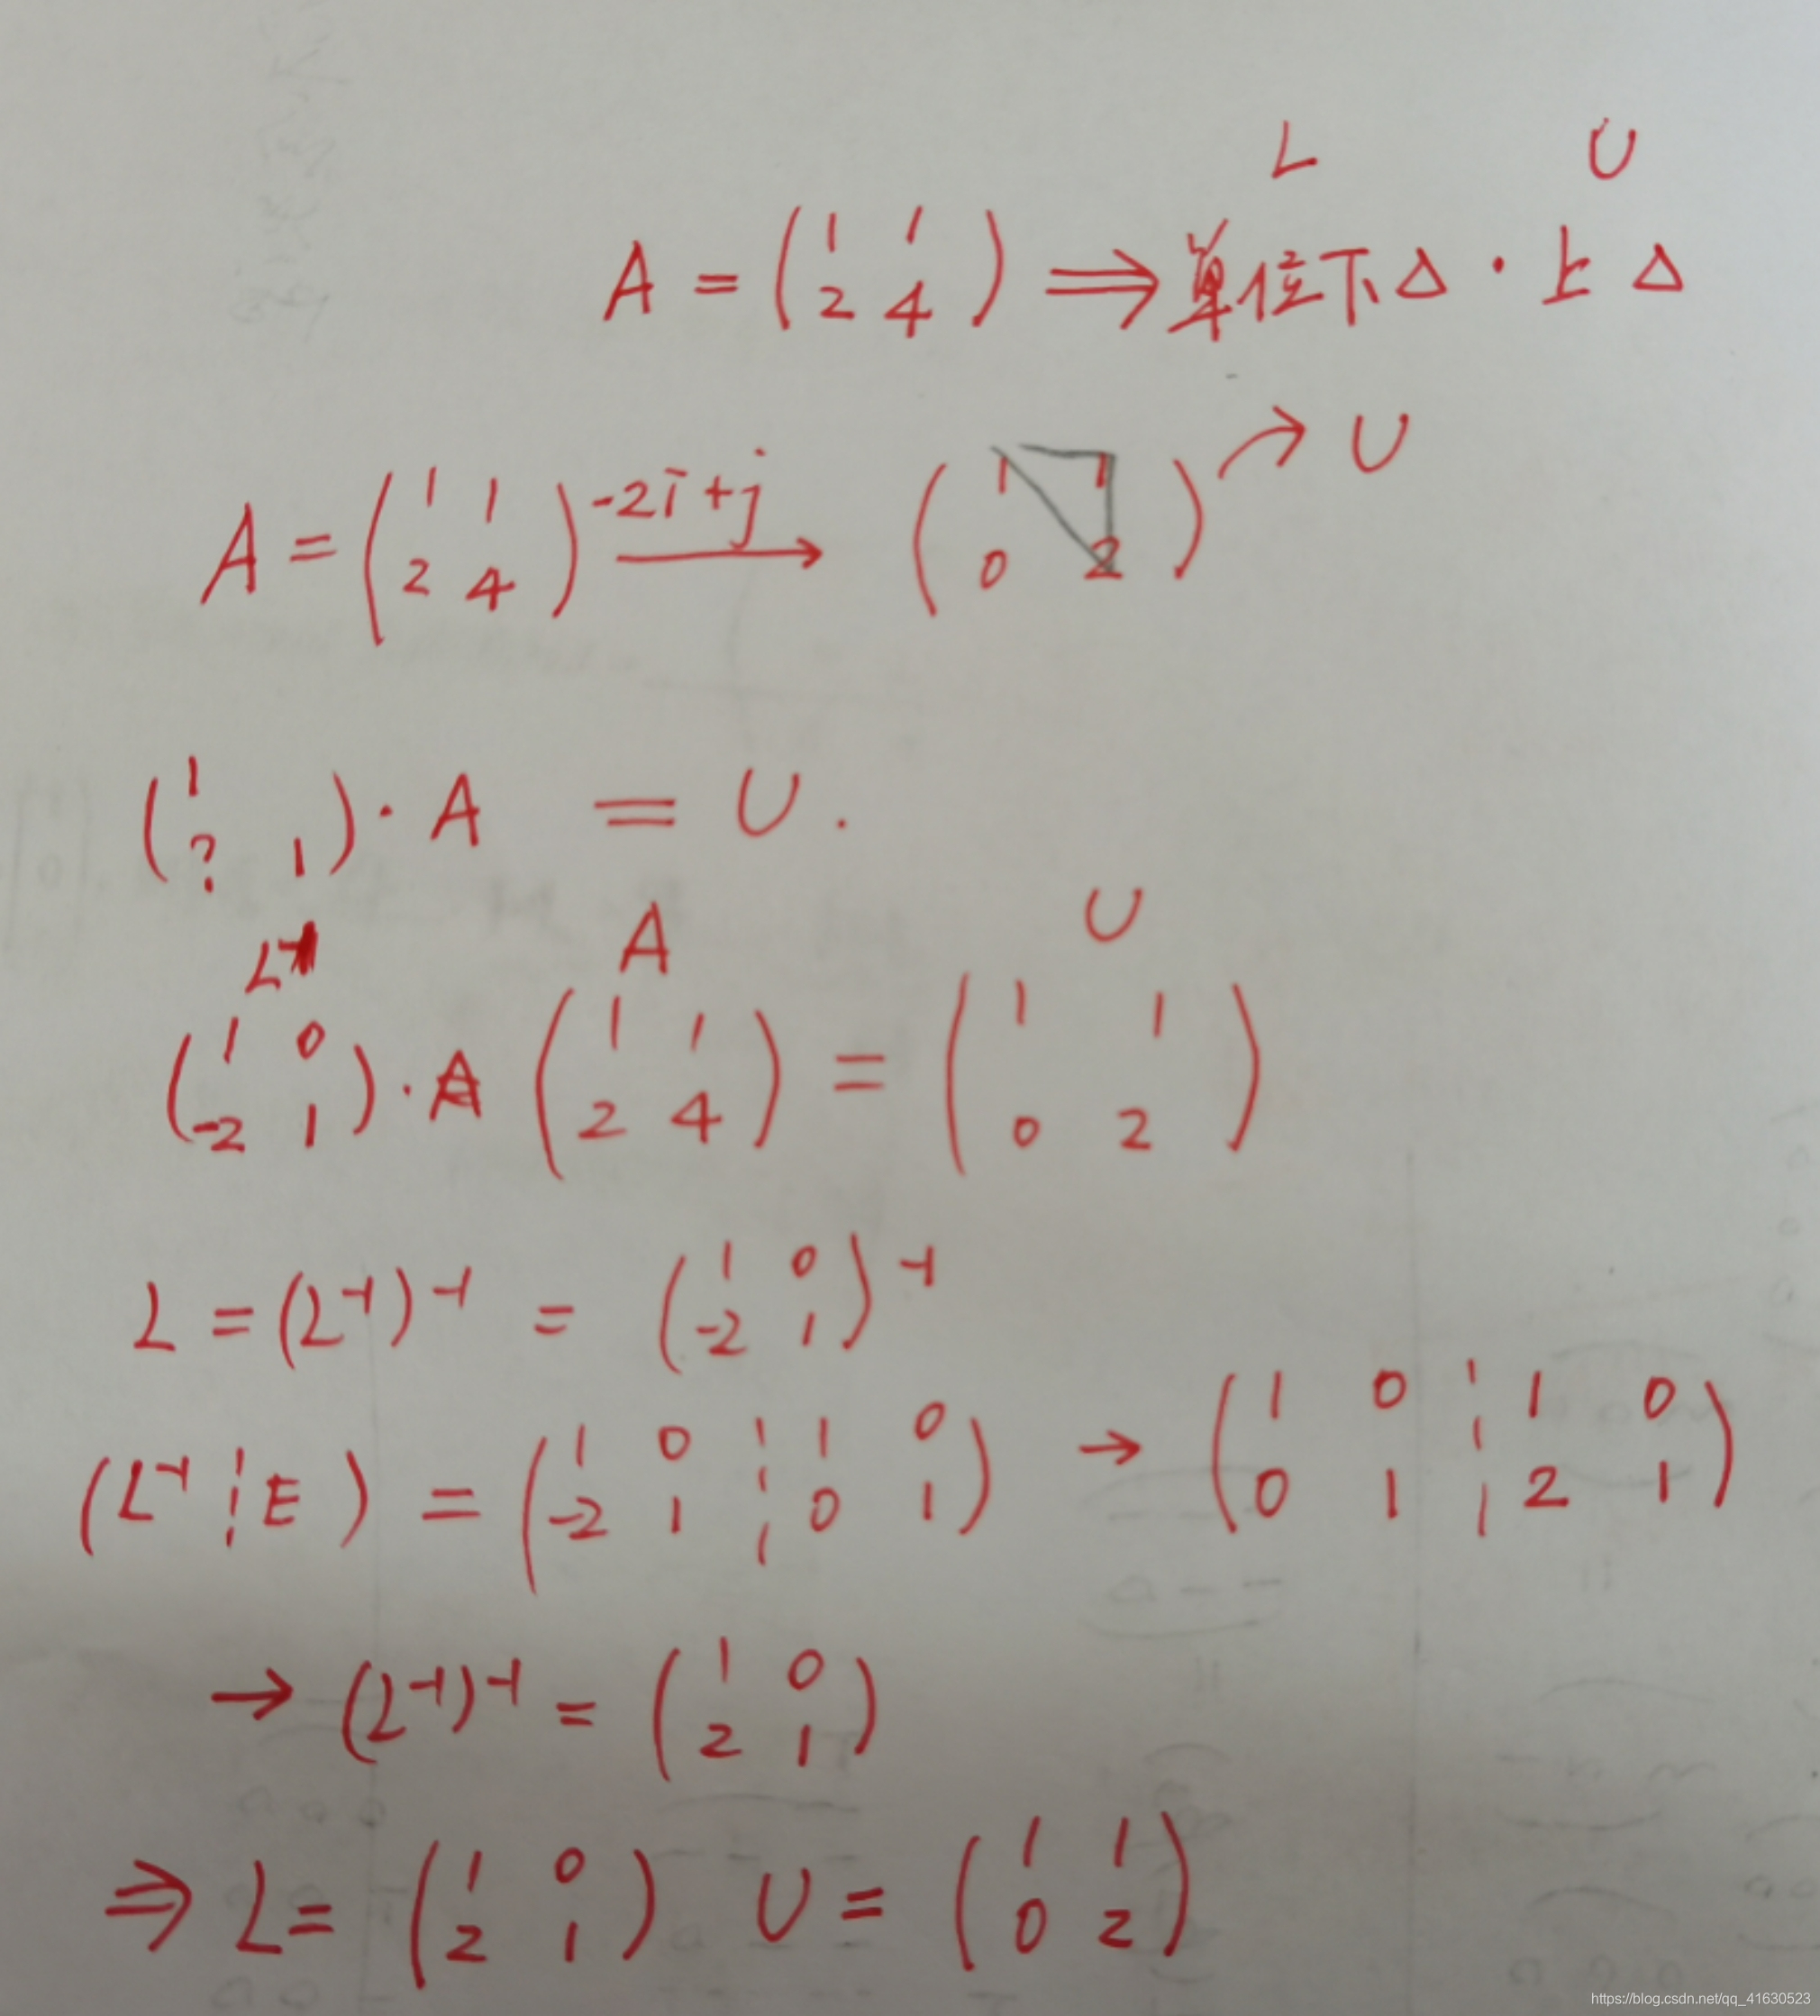 L U
A = ( 1 1 ; 2 4 ) ⟹ 单位下Δ · 上Δ
A = ( 1 1 ; 2 4 ) -2i+j → ( 1 1 ; 0 2 ) → U
( 1 ; ? 1 ) · A = U .
L⁻¹ A U
( 1 0 ; -2 1 ) · A ( 1 1 ; 2 4 ) = ( 1 1 ; 0 2 )
L = (L⁻¹)⁻¹ = ( 1 0 ; -2 1 )⁻¹
( L⁻¹ ¦ E ) = ( 1 0 ¦ 1 0 ; -2 1 ¦ 0 1 ) → ( 1 0 ¦ 1 0 ; 0 1 ¦ 2 1 )
→ (L⁻¹)⁻¹ = ( 1 0 ; 2 1 )
⇒ L = ( 1 0 ; 2 1 ) U = ( 1 1 ; 0 2 )
https://blog.csdn.net/qq_41630523